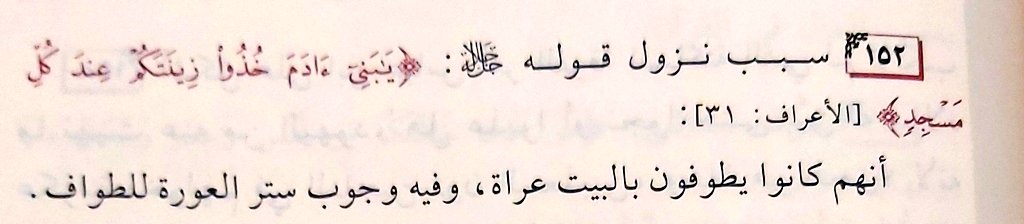 ١٥٢ سبب نزول قوله ﷻ: ﴿يَـٰبَنِىٓ ءَادَمَ خُذُوا۟ زِينَتَكُمْ عِندَ كُلِّ
مَسْجِدٍ﴾ [الأعراف: ٣١]:
أنهم كانوا يطوفون بالبيت عراة، وفيه وجوب ستر العورة للطواف.